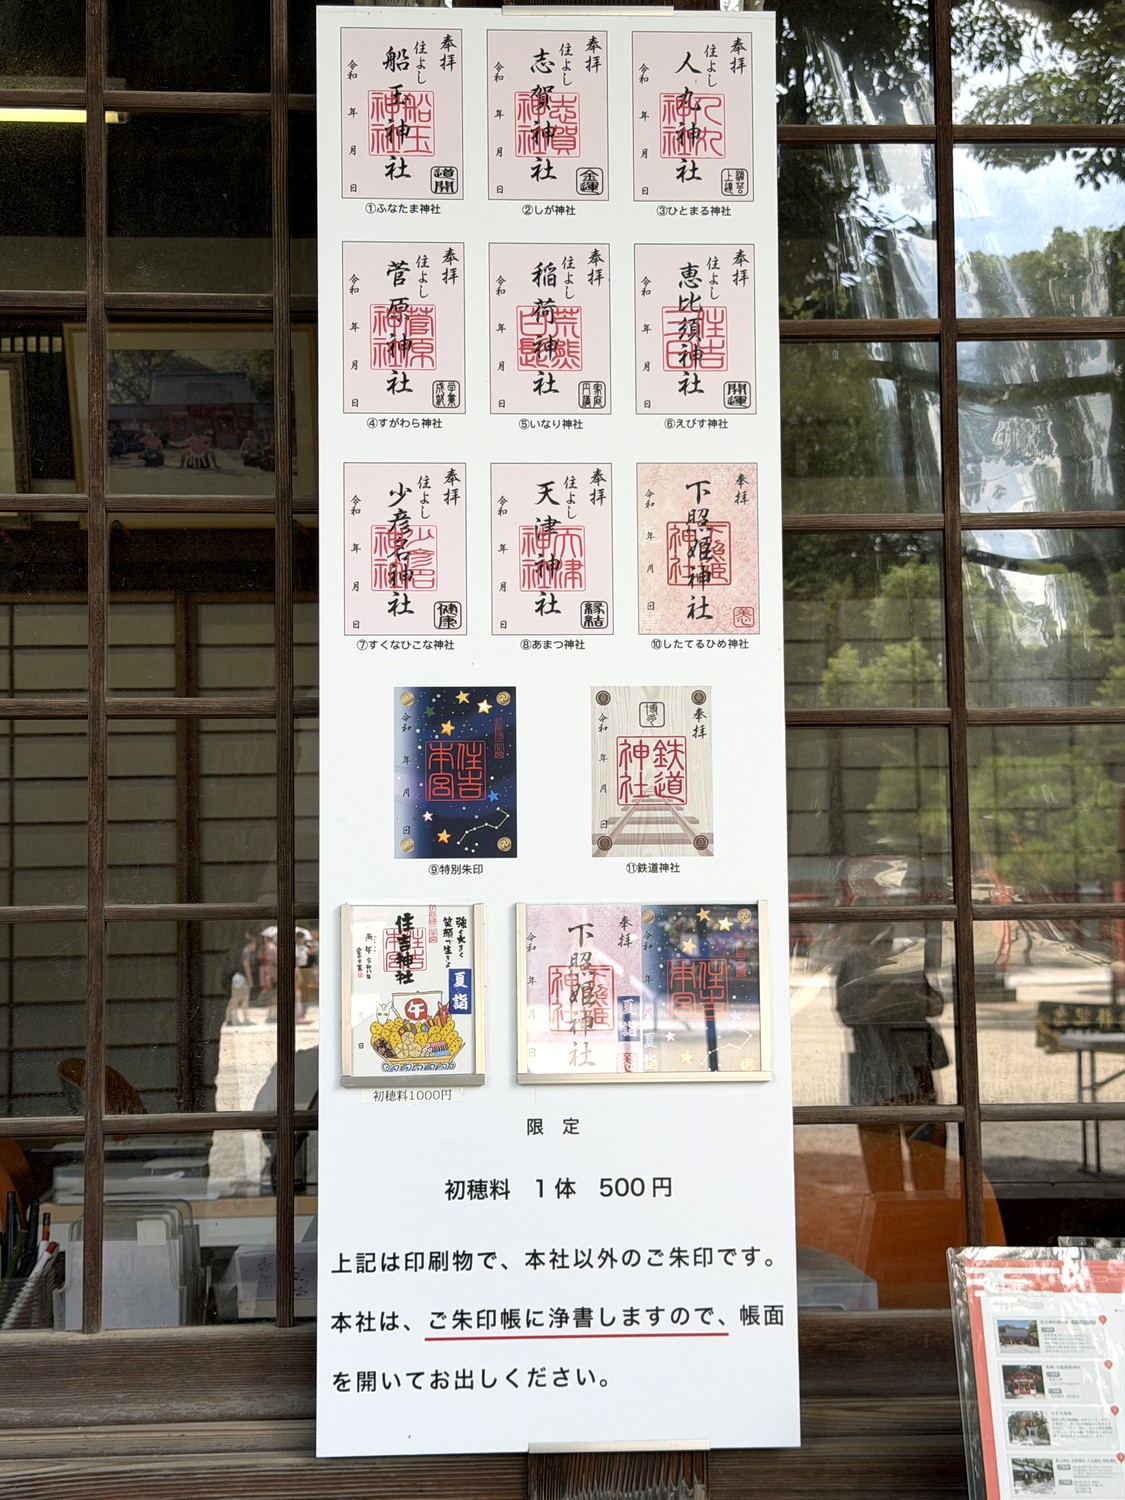 奉拝
住よし
船玉神社
令和 年 月 日
道開
①ふなたま神社
奉拝
住よし
志賀神社
令和 年 月 日
金運
②しが神社
奉拝
住よし
人丸神社
令和 年 月 日
③ひとまる神社
奉拝
住よし
菅原神社
令和 年 月 日
学業成就
④すがわら神社
奉拝
住よし
稲荷神社
令和 年 月 日
家庭円満
⑤いなり神社
奉拝
住よし
恵比須神社
令和 年 月 日
開運
⑥えびす神社
奉拝
住よし
少彦名神社
令和 年 月 日
健康
⑦すくなひこな神社
奉拝
住よし
天津神社
令和 年 月 日
縁結
⑧あまつ神社
奉拝
下照姫神社
令和 年 月 日
⑩したてるひめ神社
住吉本宮
令和 年 月 日
⑨特別朱印
奉拝
博多
鉄道神社
令和 年 月 日
⑪鉄道神社
住吉神社
夏詣
午
日
初穂料1000円
奉拝
下照姫神社
令和 年 日
夏詣
住吉本宮
夏詣
限 定
初穂料 1体 500円
上記は印刷物で、本社以外のご朱印です。
本社は、ご朱印帳に浄書しますので、帳面
を開いてお出しください。